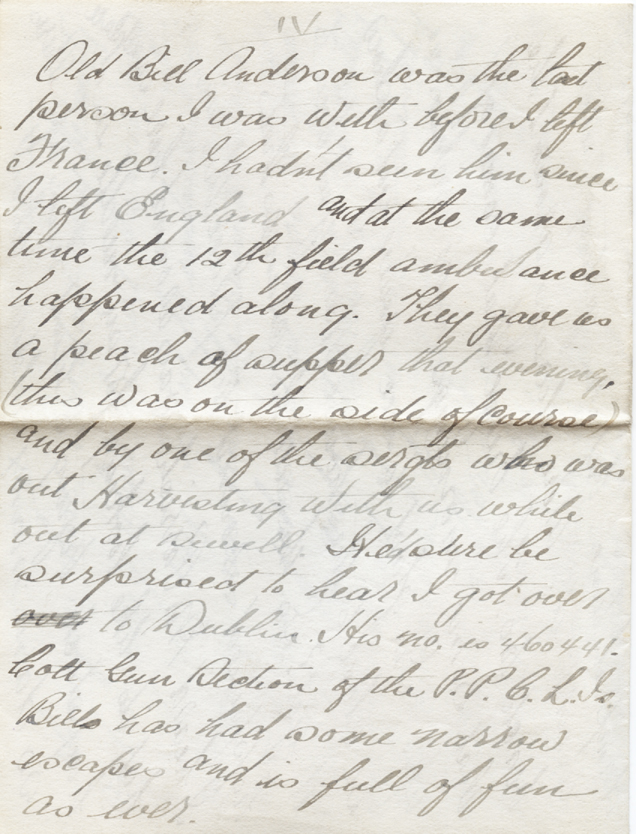 IV
Old Bill Anderson was the last
person I was with before I left
France. I hadn't seen him since
I left England and at the same
time the 12th field ambulance
happened along. They gave us
a peach of supper that evening,
(this was on the side of course)
and by one of the sergts who was
out Harvesting with us while
out at sewell. He'd sure be
surprised to hear I got over
over to Dublin. His no. is 460441.
Colt Gun Section of the P.P.C.L.I.
Bills has had some narrow
escapes and is full of fun
as ever.